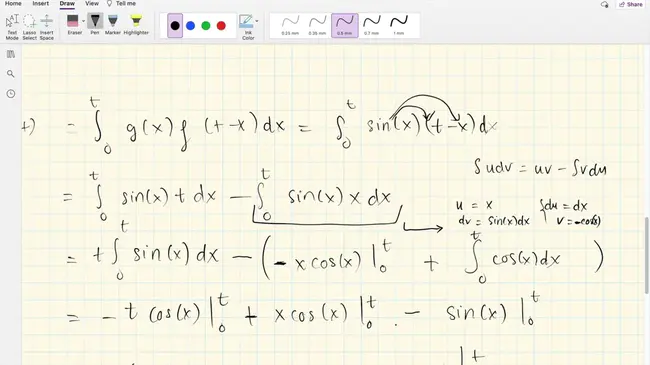 Home Insert Draw View Tell me Share
Text Mode Lasso Select Insert Space Eraser Pen Marker Highlighter Ink Color 0.25 mm 0.35 mm 0.5 mm 0.7 mm 1 mm
t) = ∫₀ᵗ g(x) f (t-x) dx = ∫₀ᵗ sin(x) (t-x) dx
∫udv = uv - ∫vdu
= ∫₀ᵗ sin(x) t dx - ∫₀ᵗ sin(x) x dx
u = x du = dx
dv = sin(x)dx v = -cos(x)
= t ∫₀ᵗ sin(x) dx - (-x cos(x) |₀ᵗ + ∫₀ᵗ cos(x)dx )
= - t cos(x) |₀ᵗ + x cos(x) |₀ᵗ - sin(x) |₀ᵗ
| t